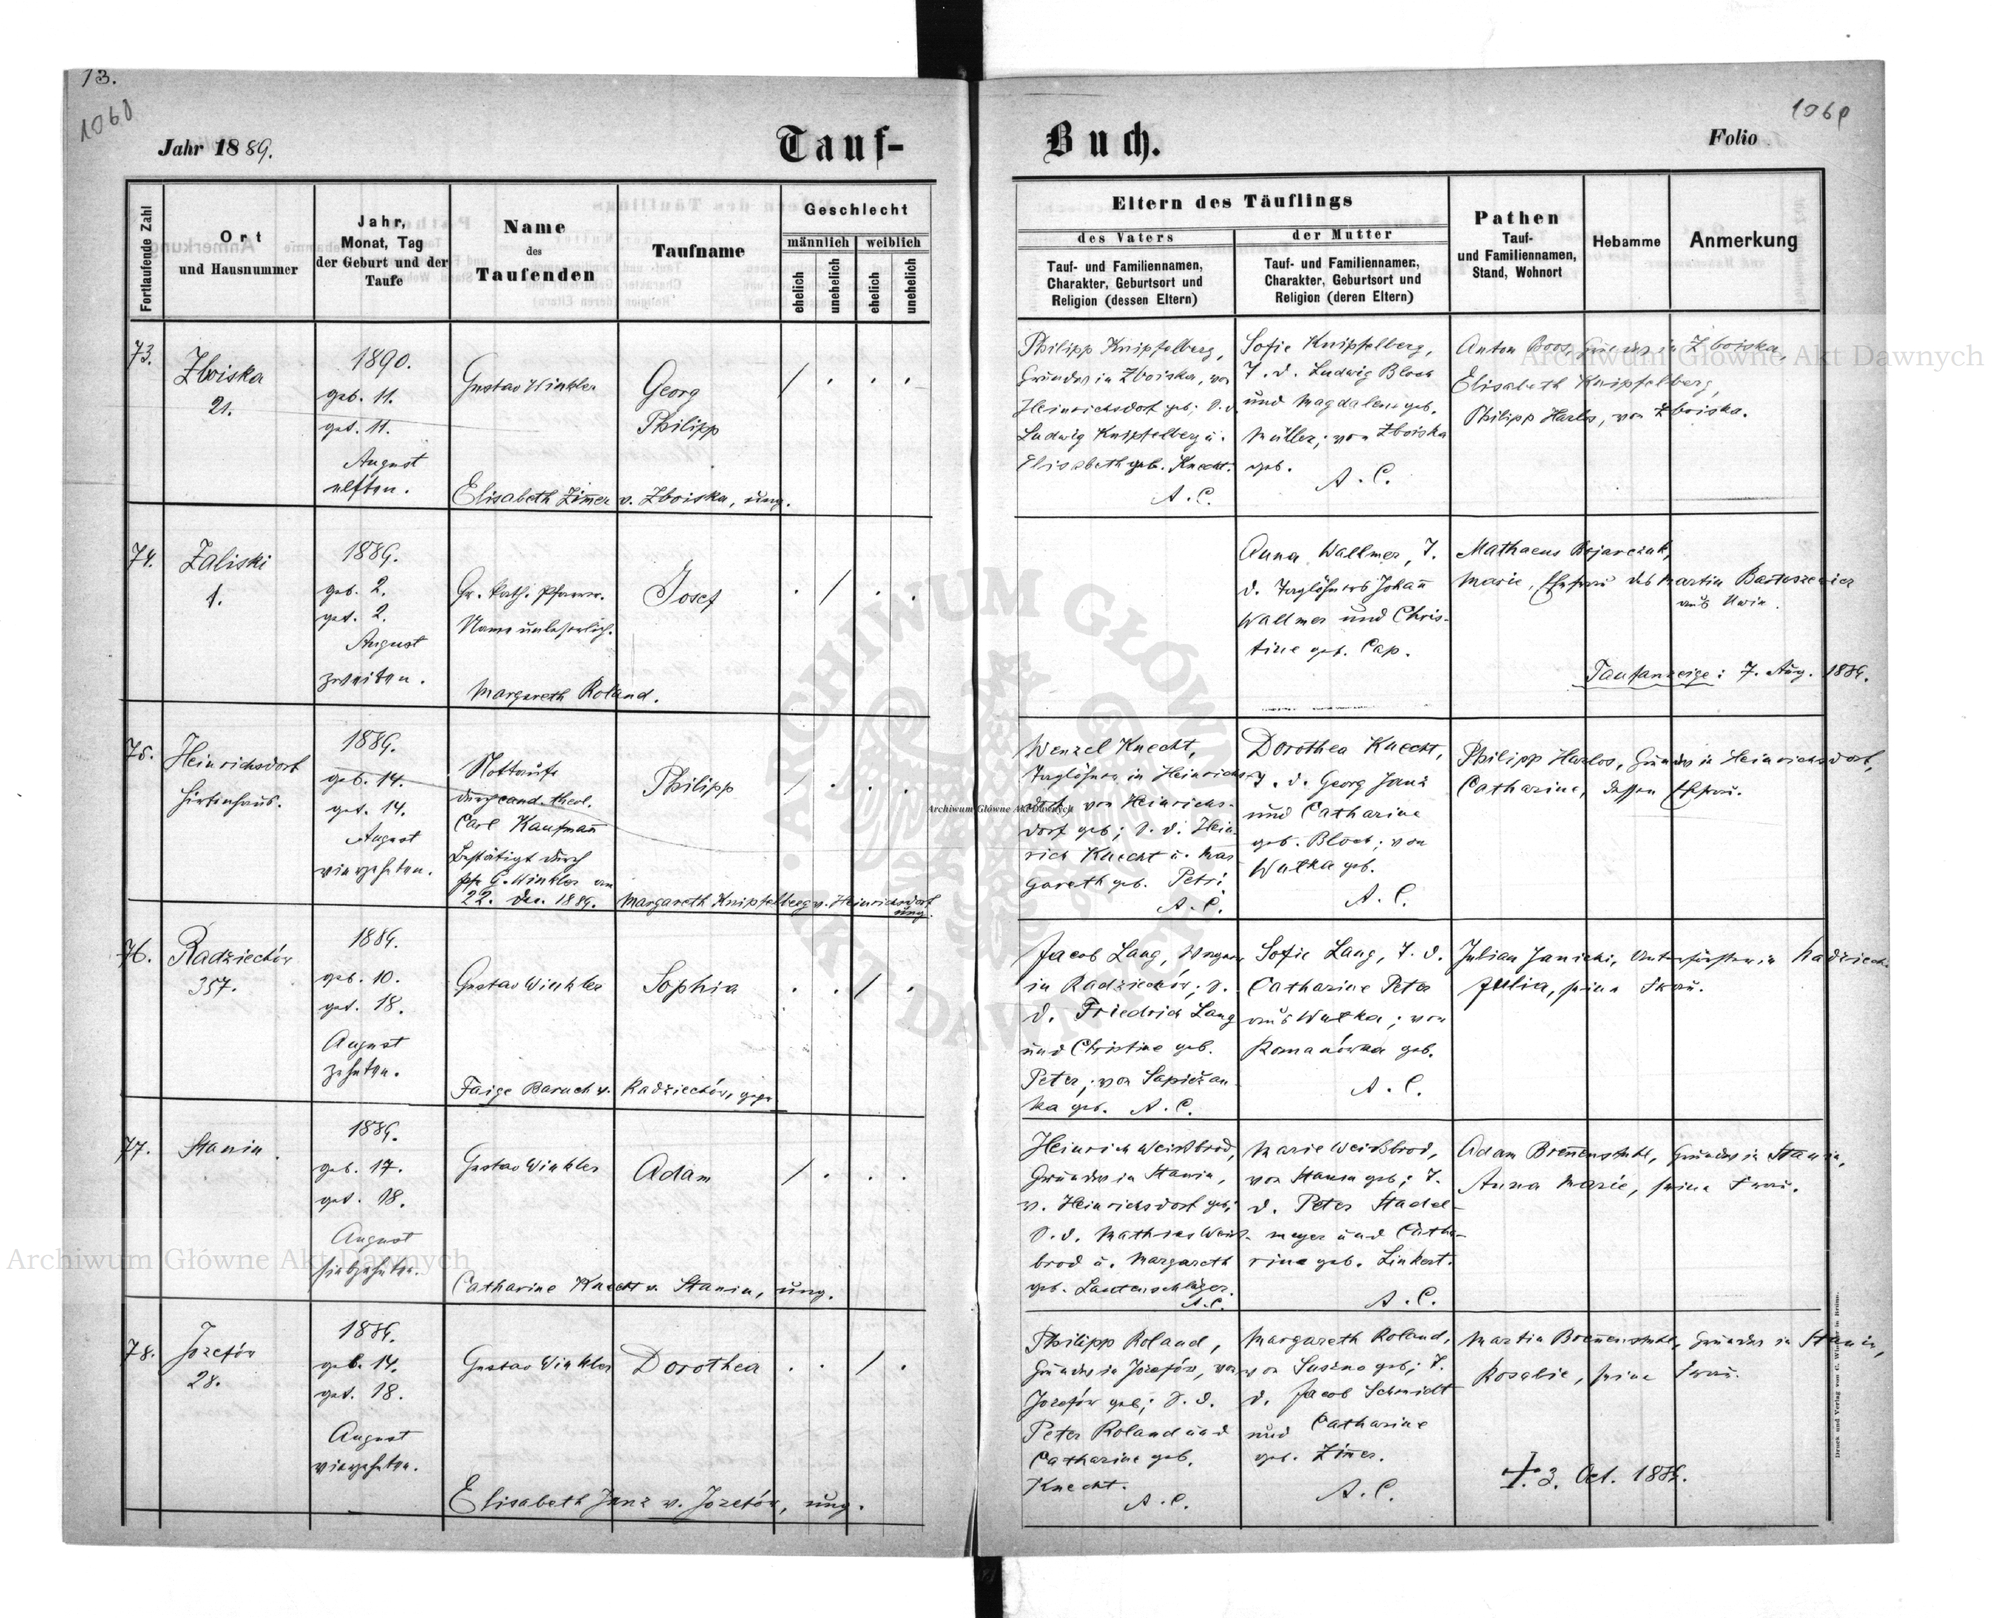 13.
1060
1060
Jahr 1889.
Tauf-
Buch.
Folio
Fortlaufende Zahl
Ort
und Hausnummer
Jahr,
Monat, Tag
der Geburt und der
Taufe
Name
des
Taufenden
Taufname
Geschlecht
männlich
weiblich
ehelich
unehelich
ehelich
unehelich
Eltern des Täuflings
des Vaters
der Mutter
Tauf- und Familiennamen,
Charakter, Geburtsort und
Religion (dessen Eltern)
Tauf- und Familiennamen,
Charakter, Geburtsort und
Religion (deren Eltern)
Pathen
Tauf-
und Familiennamen,
Stand, Wohnort
Hebamme
Anmerkung
73.
Zboiska
21.
1890.
geb. 11.
get. 11.
August
elften.
Gustav Winkler
Georg
Philipp
/ . . .
Elisabeth Zim̄er v. Zboiska, ung.
Philipp Knipfelberg,
Grundw in Zboiska, von
Heinrichsdorf geb; S. d.
Ludwig Knipfelberg u.
Elisabeth geb. Knecht.
A. C.
Sofie Knipfelberg,
T. d. Ludwig Bloch
und Magdalena geb.
Müller; von Zboiska
geb.
A. C.
Anton Boos, Grundw in Zboiska,
Elisabeth Knipfelberg,
Philipp Harlos, von Zboiska.
74.
Zaliski
1.
1889.
geb. 2.
get. 2.
August
zweiten.
Gr. kath. Pfarrer.
Name unleserlich.
Josef
. / . .
Margareth Roland.
Anna Wallmer, T.
d. Taglöhners Johan̄
Wallmer und Chris-
tine geb. Cap.
Mathaeus Bojarczuk,
Marie, Ehefrau des Martin Bartoszewicz
aus Unin.
Taufanzeige: 7. Aug. 1889.
75.
Heinrichsdorf
Hirtenhaus.
1889.
geb. 14.
get. 14.
August
vierzehnten.
Nottaufe
durch cand. theol.
Carl Kaufman̄
Bestätigt durch
G. Winkler am
22. Dec. 1889.
Philipp
/ . . .
Margareth Knipfelberg v. Heinrichsdorf
ung.
Wenzel Knecht,
Taglöhner in Heinrichs-
dorf, von Heinrichs-
dorf geb; S. d. Hein-
rich Knecht u. Mar-
gareth geb. Petri.
A. C.
Dorothea Knecht,
T. d. Georg Janz
und Catharine
geb. Bloch; von
Wulka geb.
A. C.
Philipp Harlos, Grundw in Heinrichsdorf,
Catharine, dessen Ehefrau.
76.
Radziechów
357.
1889.
geb. 10.
get. 18.
August
zehnten.
Gustav Winkler
Sophia
. . / .
Faige Baruch v. Radziechów, gepr.
Jacob Lang, Wagner
in Radziechów; S.
d. Friedrich Lang
und Christine geb.
Peter; von Sapiežan-
ka geb. A. C.
Sofie Lang, T. d.
Catharine Peter
aus Wulka; von
Romanówka geb.
A. C.
Julian Janicki, Unterförster in Radziech.
Julia, seine Frau.
77.
Stanin.
1889.
geb. 17.
get. 18.
August
siebzehnten.
Gustav Winkler
Adam
/ . . .
Catharine Knecht v. Stanin, ung.
Heinrich Weißbrod,
Grundw in Stanin,
v. Heinrichsdorf geb;
S. d. Mathias Weiß-
brod u. Margareth
geb. Lautenschläger.
A. C.
Marie Weißbrod,
von Stanin geb; T.
d. Peter Stadel-
meyer und Catha-
rine geb. Linkert.
A. C.
Adam Bren̄enstuhl, Grundw in Stanin,
Anna Marie, seine Frau.
78.
Jozefów
28.
1889.
geb. 14.
get. 18.
August
vierzehnten.
Gustav Winkler
Dorothea
. . / .
Elisabeth Janz v. Jozefów, ung.
Philipp Roland,
Grundw in Jozefów, von
Jozefów geb; S. d.
Peter Roland und
Catharine geb.
Knecht.
A. C.
Margareth Roland,
von Suszno geb; T.
d. Jacob Schmidt
und Catharine
geb. Zim̄er.
A. C.
Martin Bren̄enstuhl, Grundw in Stanin,
Rosalie, seine Frau.
+ 3. Oct. 1889.
Druck und Verlag von C. Winiker in Brünn.
Archiwum Główne Akt Dawnych
Archiwum Główne Akt Dawnych
Archiwum Główne Akt Dawnych
ARCHIWUM GŁÓWNE AKT DAWNYCH